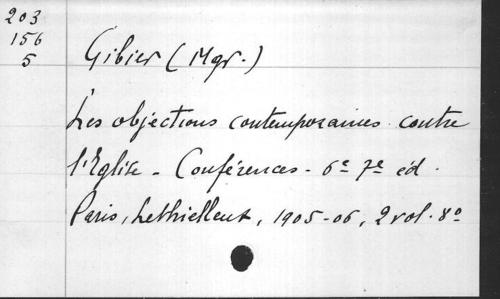 203
156
5
Gibier (Mgr.)
Les objections contemporaines contre
l'Eglise - Conférences - 6e 7e éd.
Paris, Lethielleux, 1905-06, 2 vol. 8o